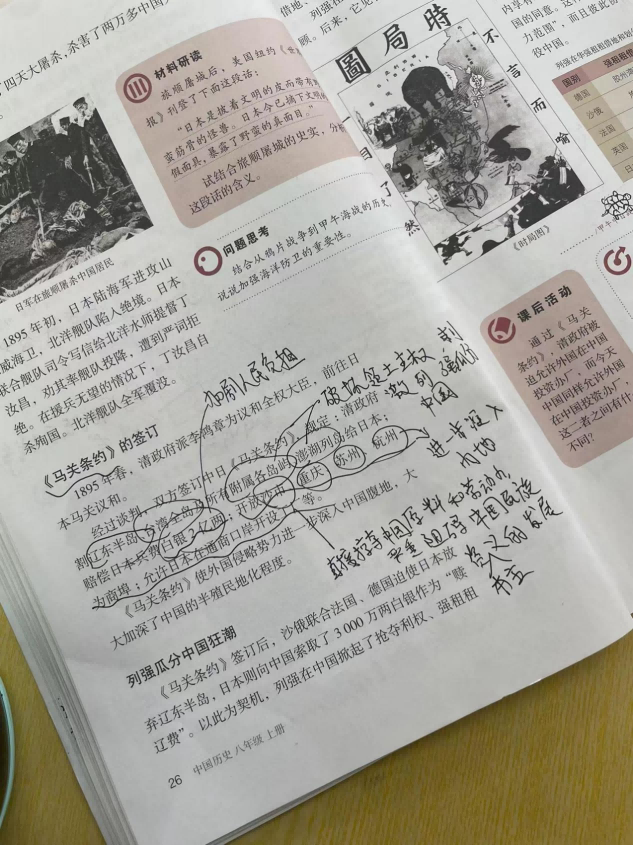 了四天大屠杀，杀害了两万多中国
材料研读
旅顺屠城后，美国纽约《世
报》刊登了下面这段话：
“日本是披着文明的皮而带有野
蛮筋骨的怪兽。日本今已摘下文明的
假面具，暴露了野蛮的真面目。”
试结合旅顺屠城的史实，分析
这段话的含义。
日军在旅顺屠杀中国居民
问题思考
结合从鸦片战争到甲午海战的历史，
说说加强海洋防卫的重要性。
1895年初，日本陆海军进攻山
威海卫，北洋舰队陷入绝境。日本
联合舰队司令写信给北洋水师提督丁
汝昌，劝其率舰队投降，遭到严词拒
绝。在援兵无望的情况下，丁汝昌自
杀殉国。北洋舰队全军覆没。
《马关条约》的签订
1895年春，清政府派李鸿章为议和全权大臣，前往日
本马关议和。
经过谈判，双方签订中日《马关条约》，规定：清政府
割辽东半岛、台湾全岛及所有附属各岛屿、澎湖列岛给日本；
赔偿日本兵费白银2亿两；开放沙市、重庆、苏州、杭州
为商埠；允许日本在通商口岸开设
等。
《马关条约》使外国侵略势力进一步深入中国腹地，大
大加深了中国的半殖民地化程度。
加剧人民负担
破坏领土主权
刺
激列强
中国
进一步深入
内地
直接掠夺中国原料和劳动力
严重阻碍中国民族
资义的发展
本主
列强瓜分中国狂潮
《马关条约》签订后，沙俄联合法国、德国迫使日本放
弃辽东半岛，日本则向中国索取了3 000万两白银作为“赎
辽费”。以此为契机，列强在中国掀起了抢夺利权、强租租
26
中国历史 八年级 上册
借地、
列强在
顾。后来，它见
時局圖
不言而喻
一目了然
《时局图》
内享有
国的同意。这样
力范围”，而且彼此协
役中国。
列强在华强租租借地和划
国别
强租租借
德国
胶州
沙俄
法国
英国
日
甲午
课后活动
通过《马关
条约》，清政府被
迫允许外国在中国
投资办厂，而今天
中国同样允许外国
在中国投资办厂，
这二者之间有什
不同？